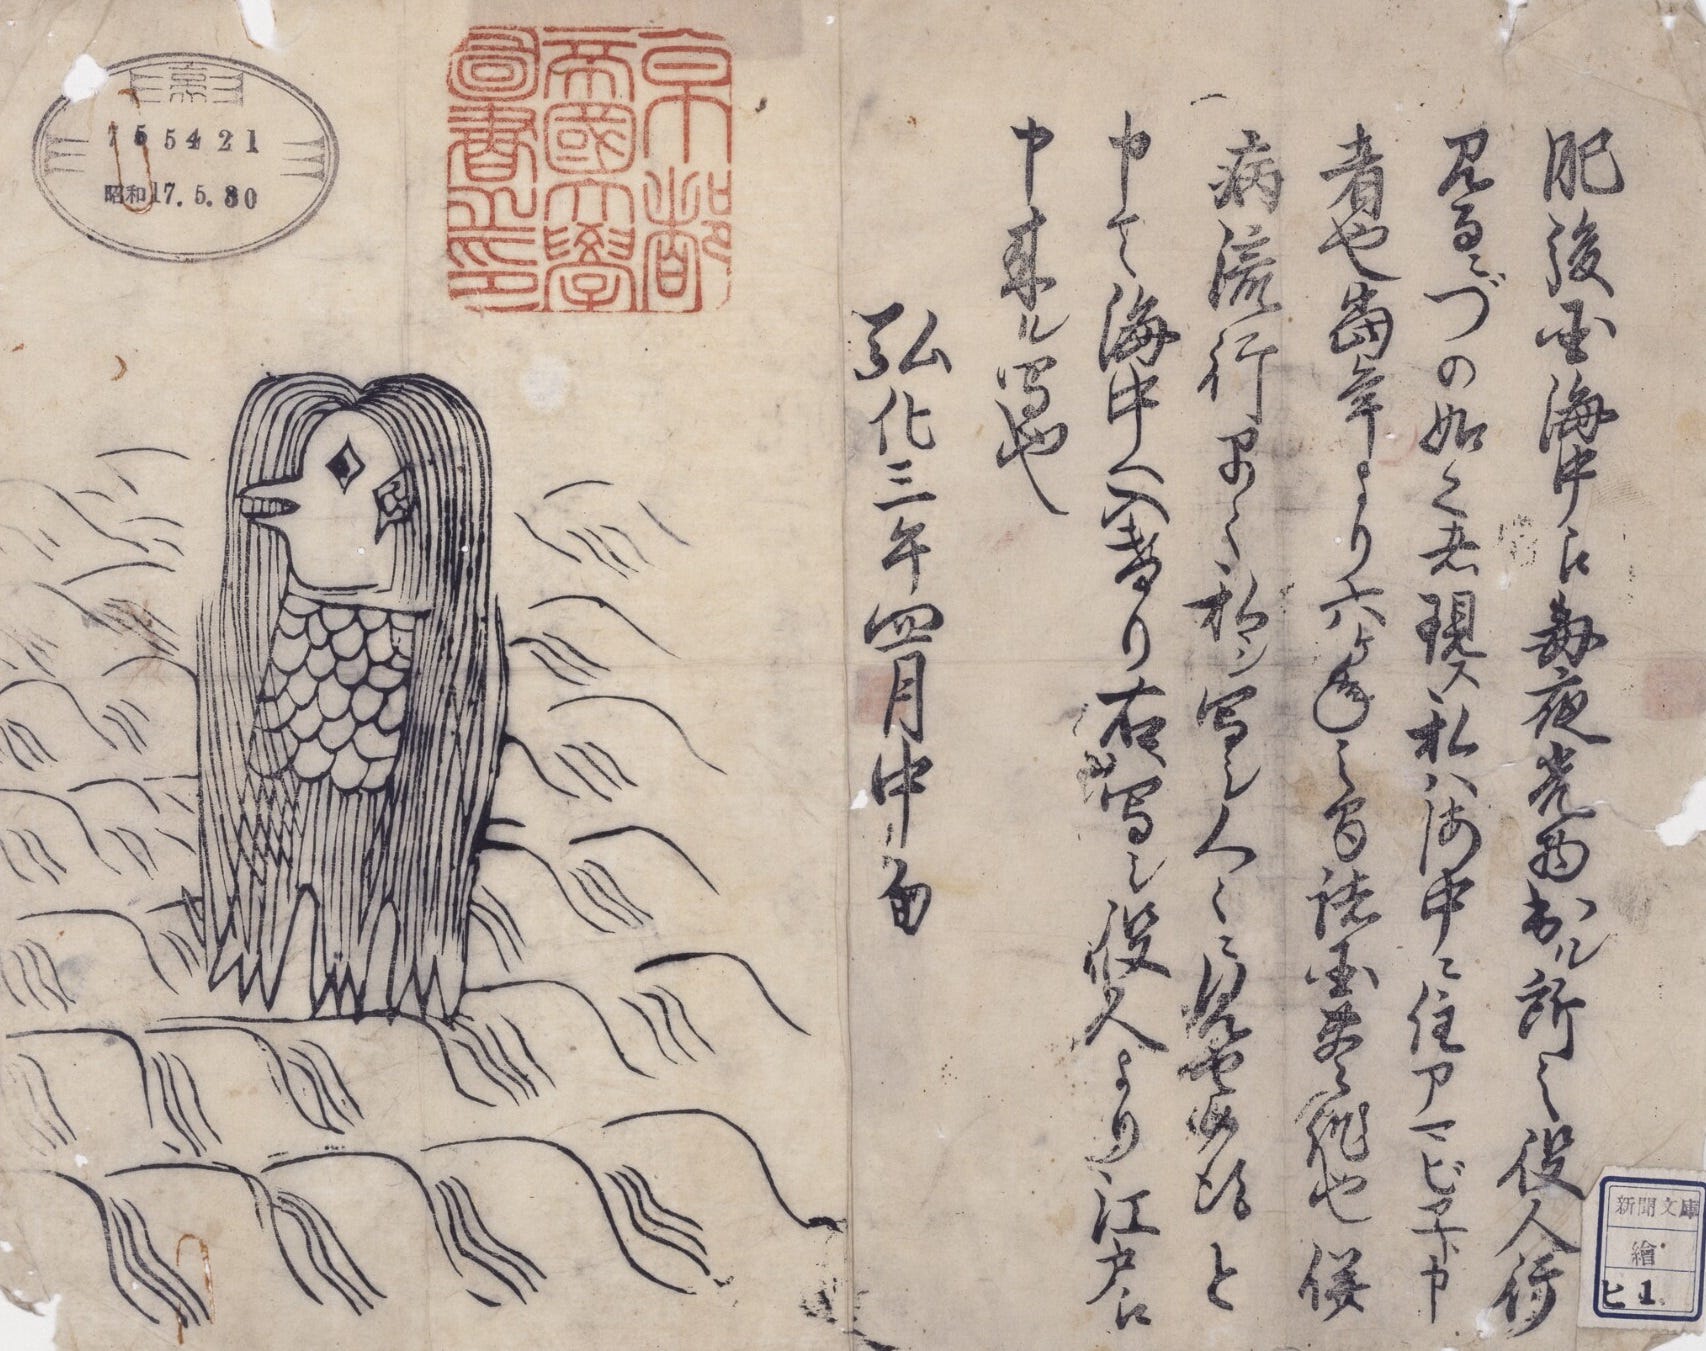 肥後国海中江毎夜光物出ル所之役人行
見るニづの如く者現ス私ハ海中ニ住アマビヱト申
者也當年より六ヶ年之間諸国豊作也併
病流行早々私ヲ写シ人々ニ見せ候得と
申て海中へ入けり右写シ役人より江戸江
申来ル写也
弘化三年四月中旬
京都
帝國大學
圖書之印
755421
昭和17.5.30
新聞文庫
繪
ヒ1